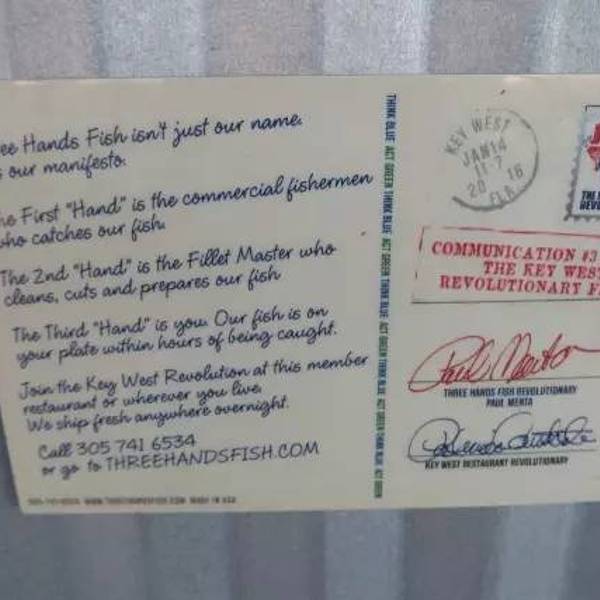 ee Hands Fish isn't just our name.
s our manifesto.
he First "Hand" is the commercial fishermen
who catches our fish.
The 2nd "Hand" is the Fillet Master who
cleans, cuts and prepares our fish
The Third "Hand" is you. Our fish is on
your plate within hours of being caught.
Join the Key West Revolution at this member
restaurant or wherever you live.
We ship fresh anywhere overnight.
Call 305 741 6534
or go to THREEHANDSFISH.COM
THINK BLUE ACT GREEN THINK BLUE ACT GREEN THINK BLUE ACT GREEN THINK BLUE ACT GREEN
KEY WEST
JAN14
11-7
20 16
FLA.
COMMUNICATION #3
THE KEY WES
REVOLUTIONARY F
Paul Menta
THREE HANDS FISH REVOLUTIONARY
PAUL MENTA
KEY WEST RESTAURANT REVOLUTIONARY